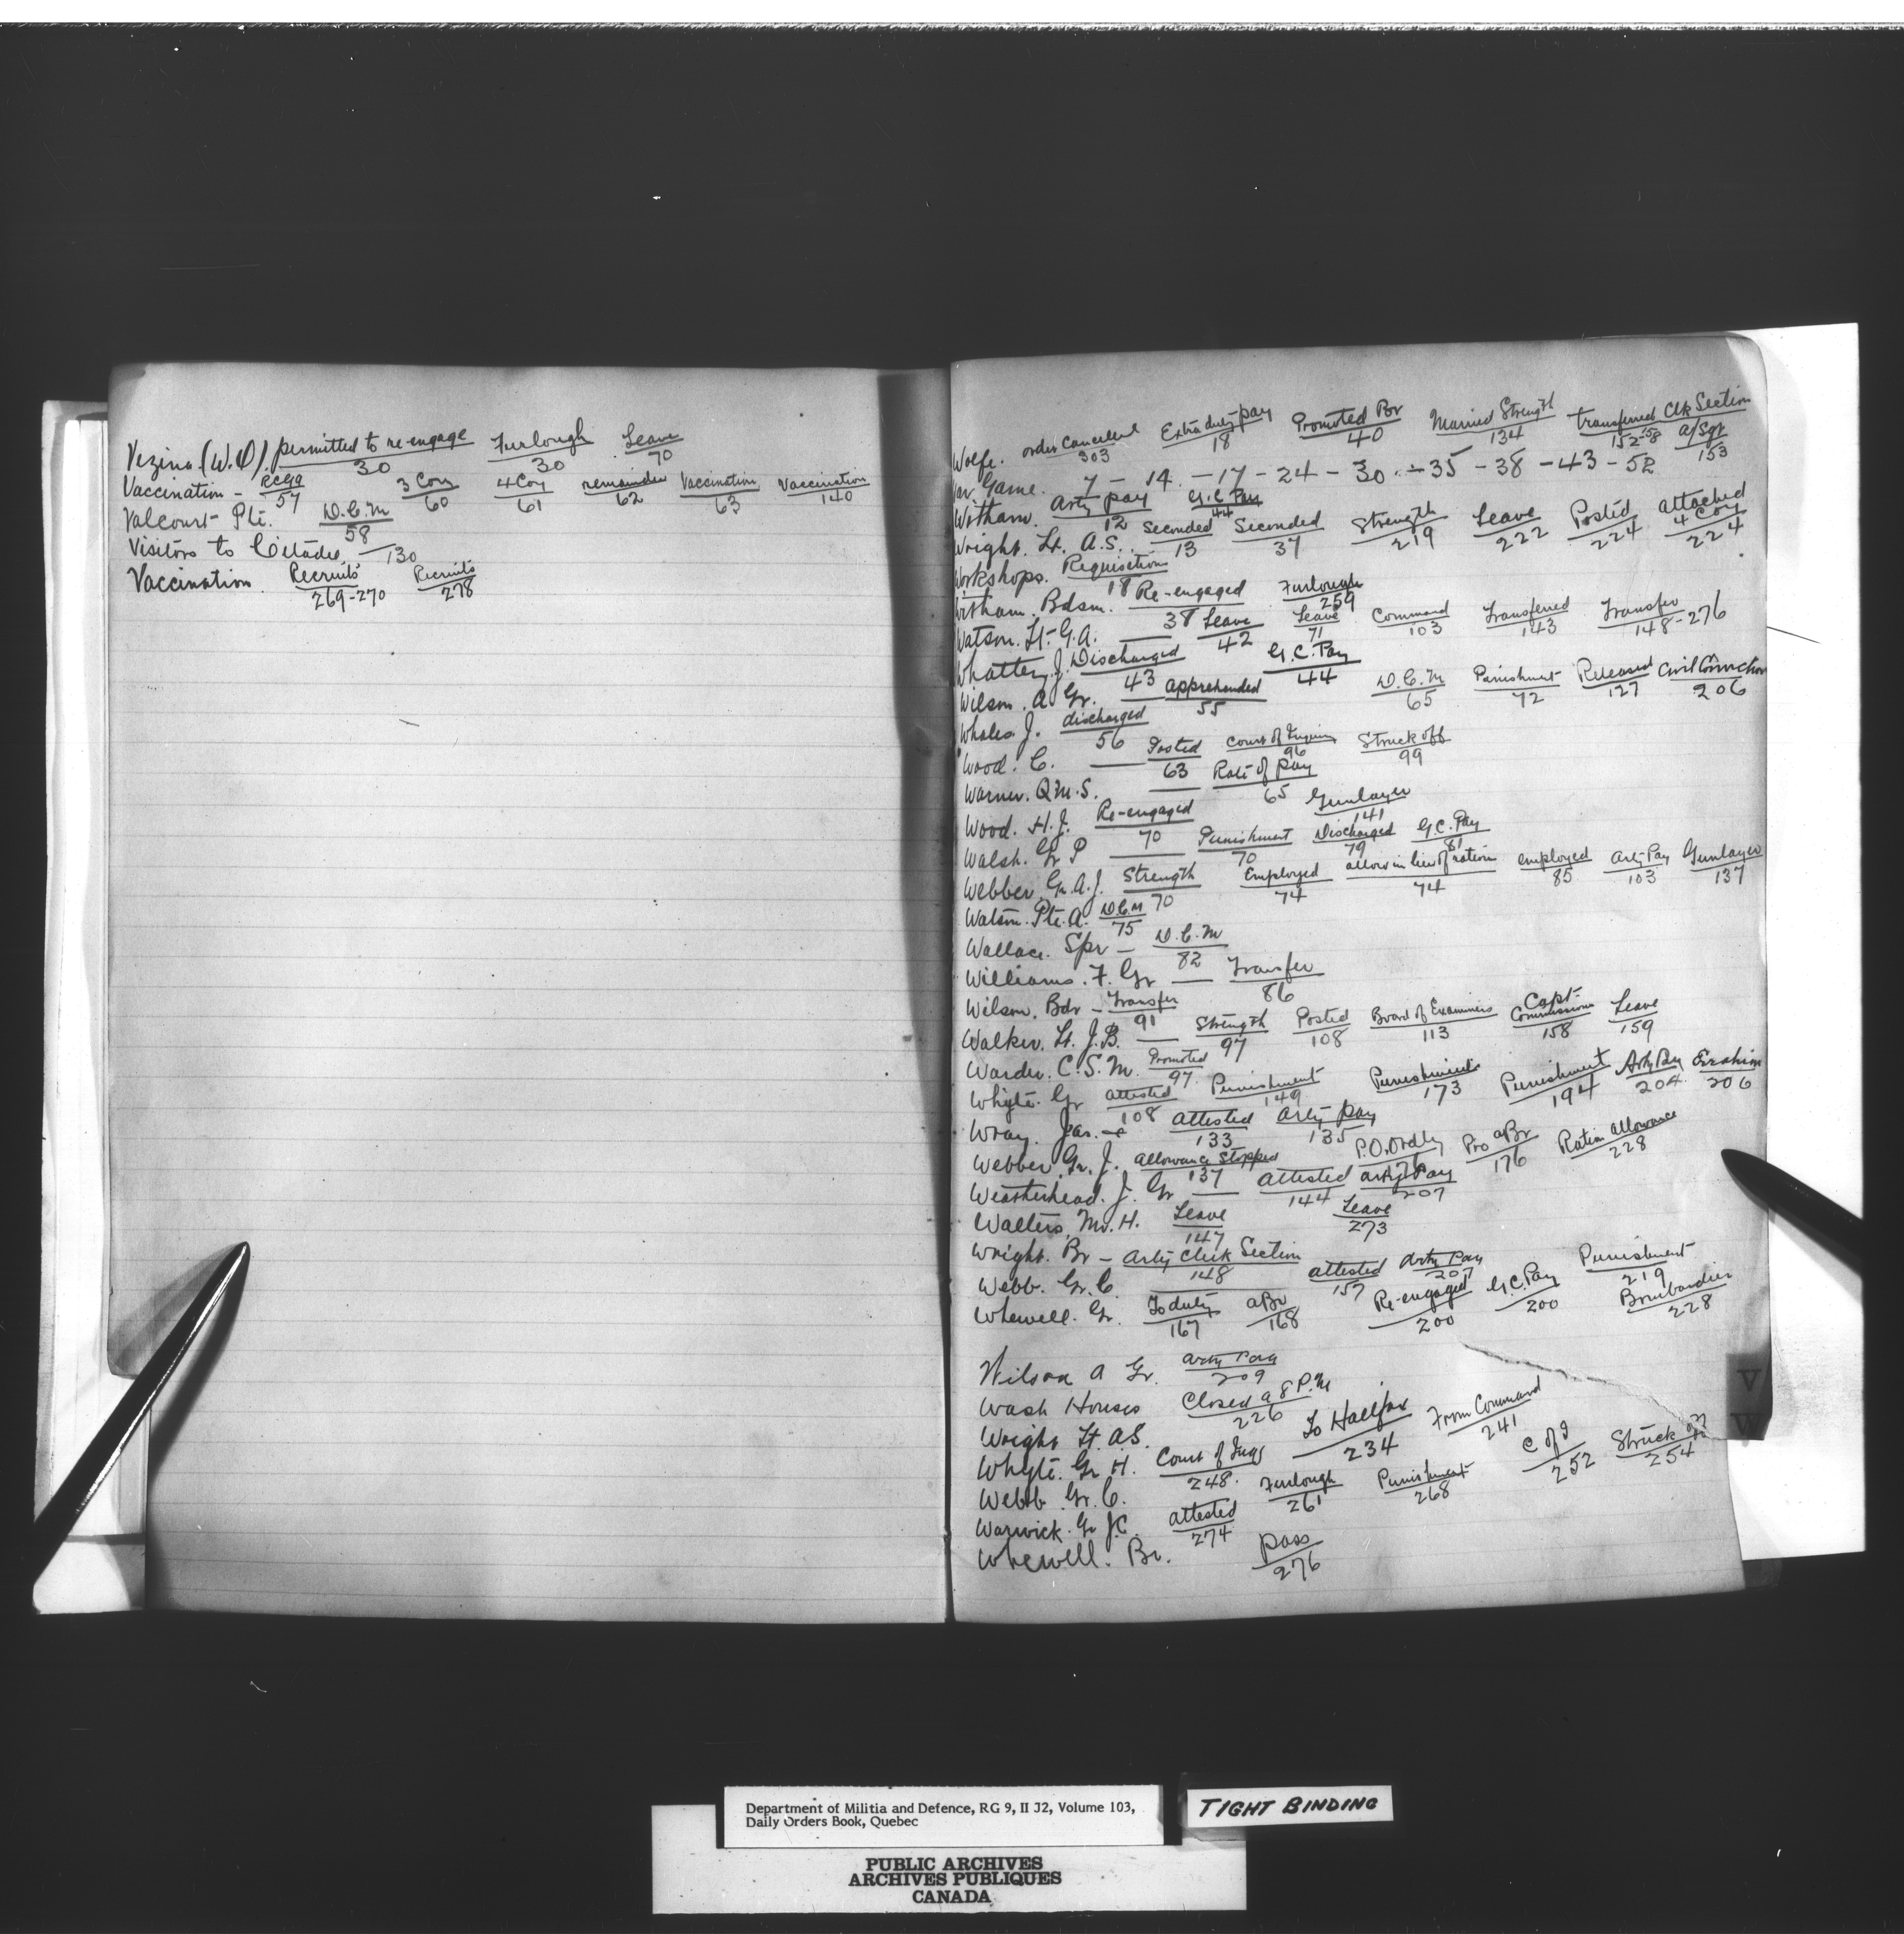 Vezina (W.O). permitted to re-engage 30 Furlough 30 Leave 70
Vaccination - RCGA 57 3 Coy 60 4 Coy 61 remainder 62 Vaccination 63 Vaccination 140
Valcourt Pte. D.C.M 58
Visitors to Citadel — 130
Vaccination. Recruits 269-270 Recruits 278
Wolfe. order cancelled 303 Extra duty pay 18 Promoted Br 40 Married Strength 134 transferred Clk Section 152-58 a/Sgt 153
War Game. 7 - 14 - 17 - 24 - 30 - 35 - 38 - 43 - 52
Witham. Arty pay 12 G.C. Pay 44
Wright. Lt. A.S. Seconded 13 Seconded 37 Strength 219 Leave 222 Posted 224 attached 4 Coy 224
Workshops. Requisitions 18
Witham. Bdsm. Re-engaged 38 Furlough 259
Watson. Lt. G.A. — Leave 42 Leave 71 Command 103 Transferred 143 Transfer 148-276
Whatley, J. Discharged 43 G.C. Pay 44
Wilson. A Gr. apprehended 55 D.C.M 65 Punishment 72 Released 127 Civil Conviction 206
Whales J. discharged 56
Wood. C. — Posted 63 Court of Inquiry 96 Struck off 99
Warner. Q.M.S. — Rate of pay 65
Wood. H.J. Re-engaged 70 Gunlayer 141
Walsh. Gr P — Punishment 70 Discharged 79 G.C. Pay 81
Webber Gr. A.J. Strength 70 Employed 74 allow in lieu of ration 74 employed 85 Arty Pay 103 Gunlayer 137
Watson. Pte. A. D.C.M 75
Wallace. Spr — D.C.M 82
Williams. F. Gr — Transfer 86
Wilson. Bdr — Transfer 91
Walker. Lt. J.B. — Strength 97 Posted 108 Board of Examiners 113 Capt- Commission 158 Leave 159
Warder. C.S.M. Promoted 97
Whyte. Gr attested 108 Punishment 149 Punishment 173 Punishment 194 Arty Pay 204 206
Wray. Jas. — attested 133 Arty pay 135
Webber Gr. J. allowance Stopped 137 P.O. Ordly Pro aBr 176 Ration allowance 228
Weatherhead. J. Gr — attested 144 arty Pay 207
Walters, Mr. H. Leave 147 Leave 273
Wright. Br — Arty Clerk Section 148
Webb. Gr. C. — attested 157 Arty Pay 207
Whewell. Gr. To duty 167 aBr 168 Re-engaged 200 G.C. Pay 200 Punishment 219 Bombardier 228
Wilson A Gr. Arty Pay 209
Wash Houses Closed a 8 P.M 226
Wright Lt. A.S. To Halifax 234 From Command 241
Whyte. Gr H. Court of Inqy 248. C of I 252 Struck off 254
Webb Gr. C. Furlough 261 Punishment 268
Warwick. Gr J.C. attested 274
Whewell. Br. pass 276
V
W
Department of Militia and Defence, RG 9, II J2, Volume 103,
Daily Orders Book, Quebec
TIGHT BINDING
PUBLIC ARCHIVES
ARCHIVES PUBLIQUES
CANADA